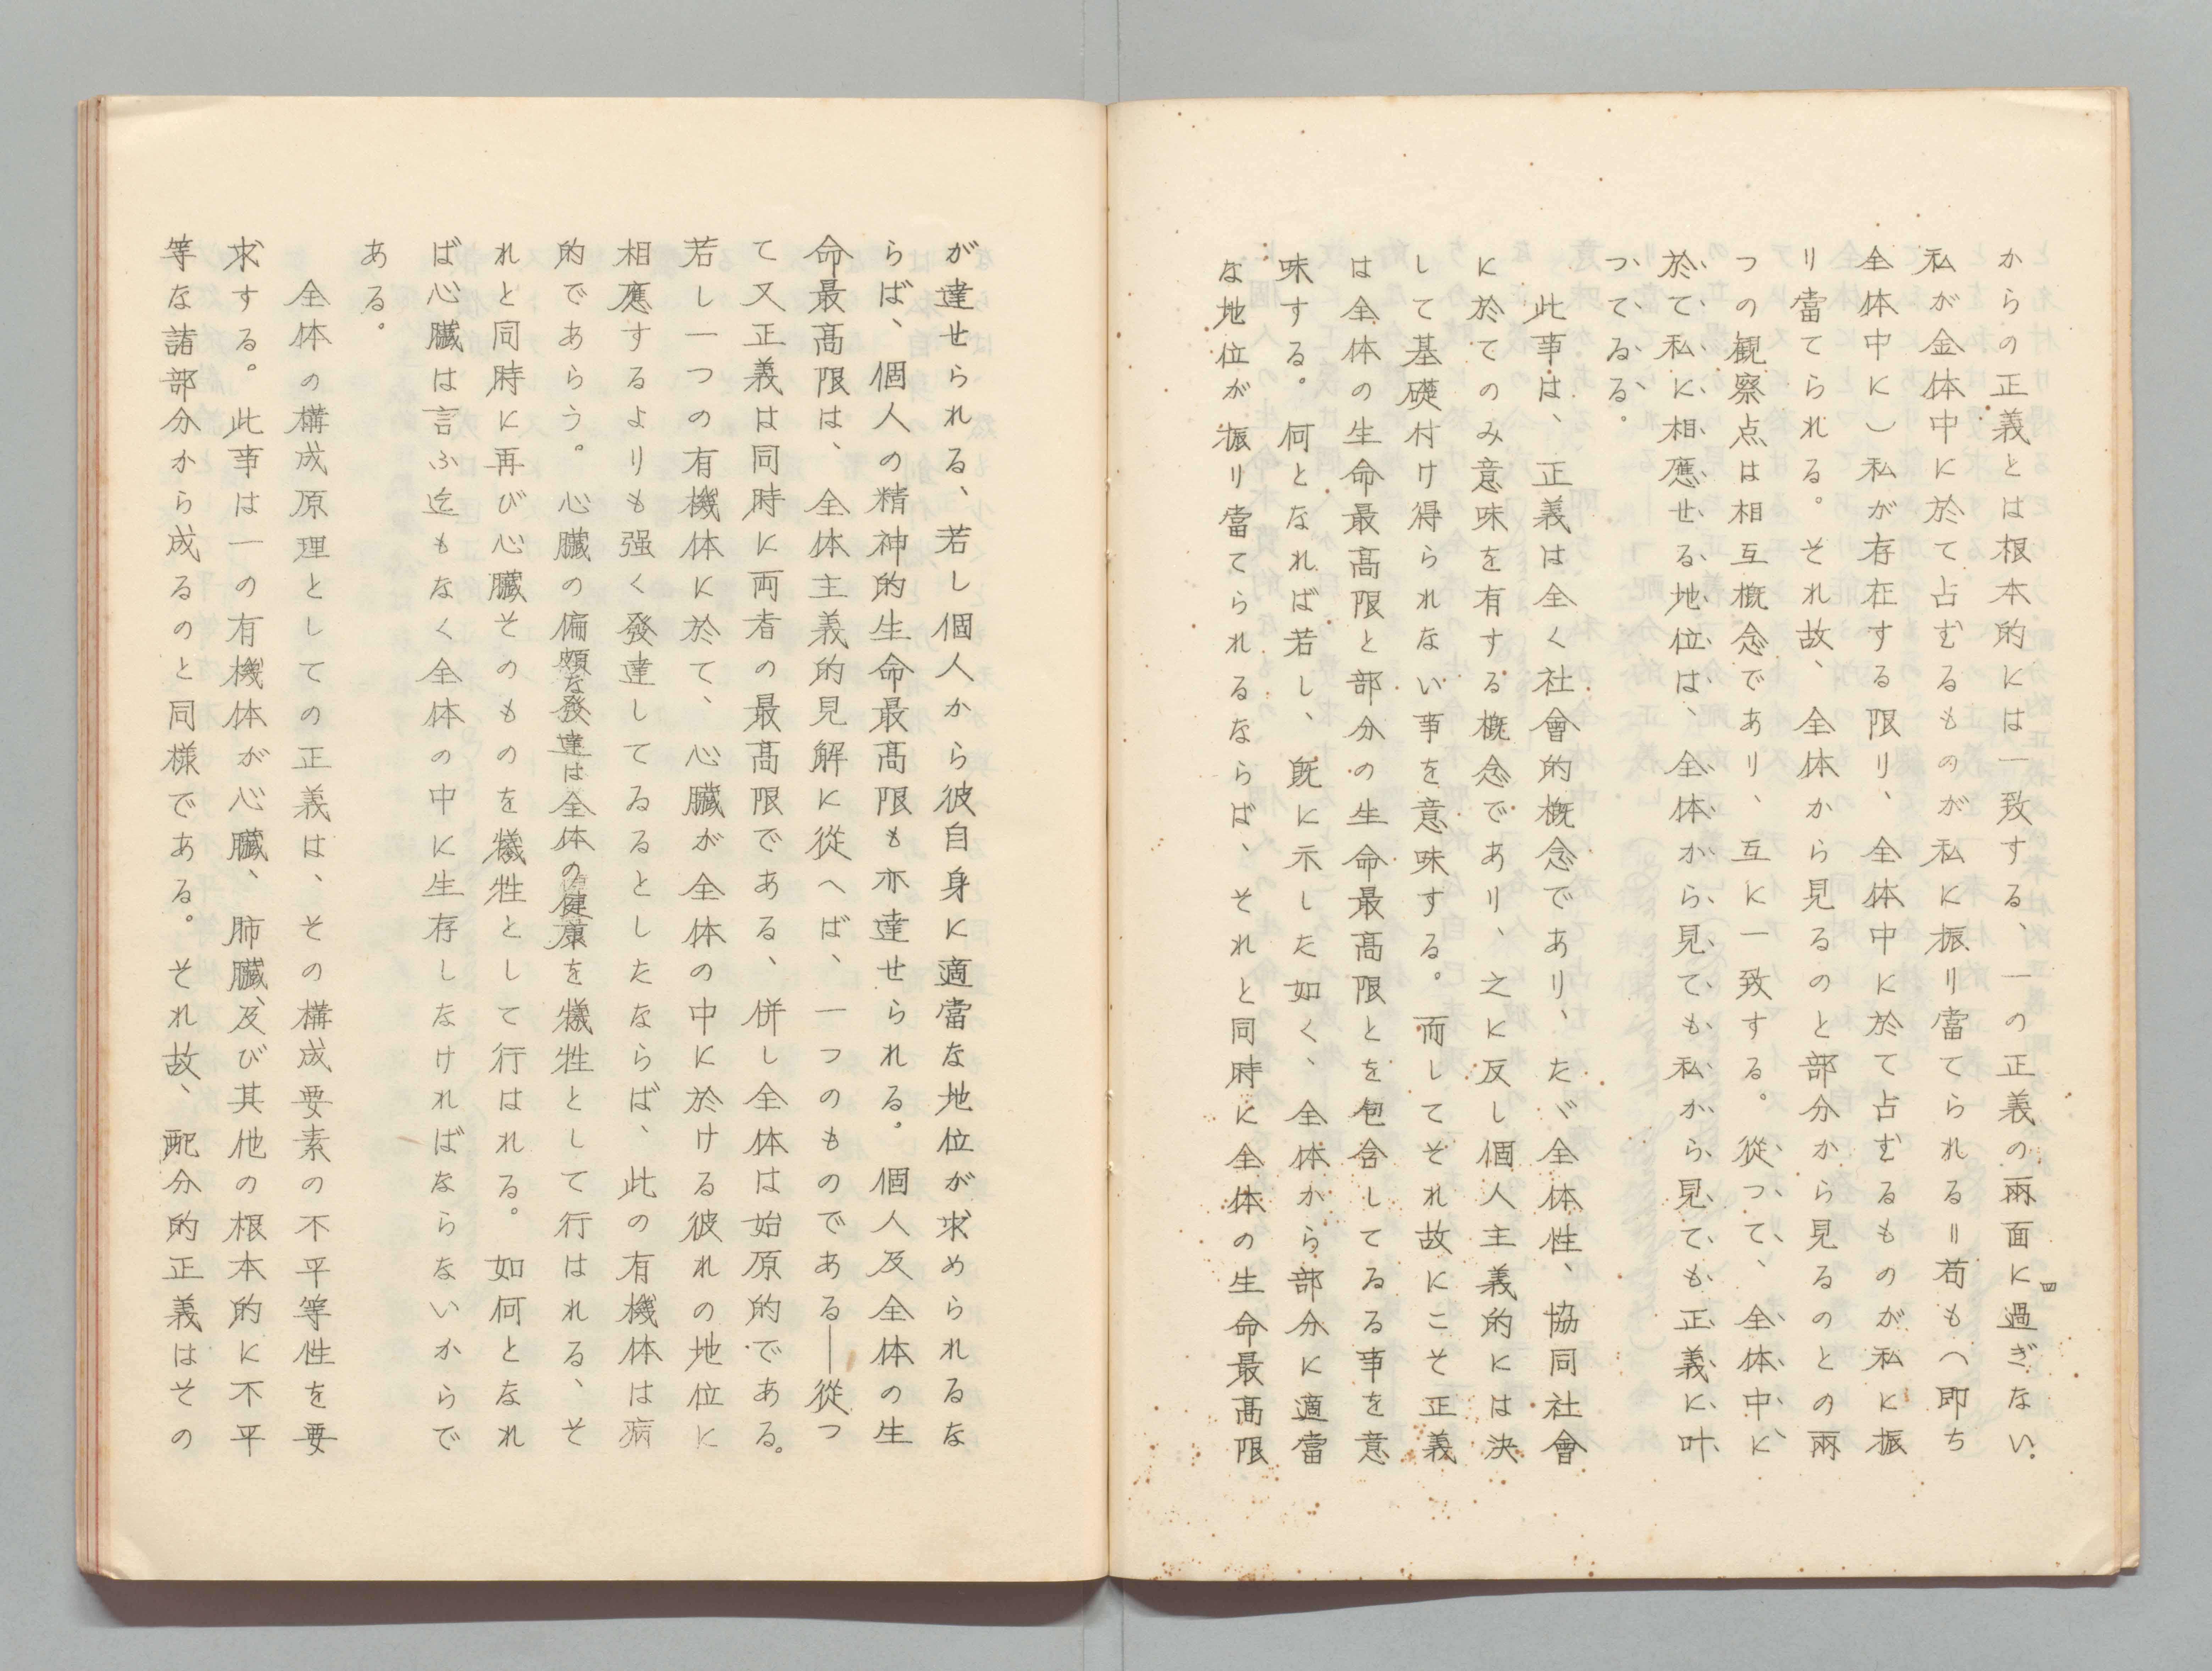 からの正義とは根本的には一致する、一の正義の兩面に過ぎない.
四
私が金体中に於て占むるものが私に振り當てられる＝苟も（即ち
全体中に）私が存在する限り、全体中に於て占むるものが私に振
り當てられる。それ故、全体から見るのと部分から見るのとの兩
つの観察点は相互概念であり、互に一致する。從つて、全体中に
於て私に相應せる地位は、全体から見ても私から見ても正義に叶
つてゐる。
此事は、正義は全く社會的概念であり、たゞ全体性、協同社會
に於てのみ意味を有する概念であり、之に反し個人主義的には決
して基礎付け得られない事を意味する。而してそれ故にこそ正義
は全体の生命最高限と部分の生命最高限とを包含してゐる事を意
味する。何となれば若し、既に示した如く、全体から部分に適當
な地位が振り當てられるならば、それと同時に全体の生命最高限
が達せられる、若し個人から彼自身に適當な地位が求められるな
らば、個人の精神的生命最高限も亦達せられる。個人及全体の生
命最高限は、全体主義的見解に從へば、一つのものである──從つ
て又正義は同時に両者の最高限である、併し全体は始原的である。
若し一つの有機体に於て、心臓が全体の中に於ける彼れの地位に
相應するよりも强く發達してゐるとしたならば、此の有機体は病
的であらう。心臓の偏頗な發達は全体の健康を犠牲として行はれる、そ
れと同時に再び心臓そのものを犠牲として行はれる。如何となれ
ば心臓は言ふ迄もなく全体の中に生存しなければならないからで
ある。
全体の構成原理としての正義は、その構成要素の不平等性を要
求する。此事は一の有機体が心臓、肺臓、及び其他の根本的に不平
等な諸部分から成るのと同様である。それ故、配分的正義はその